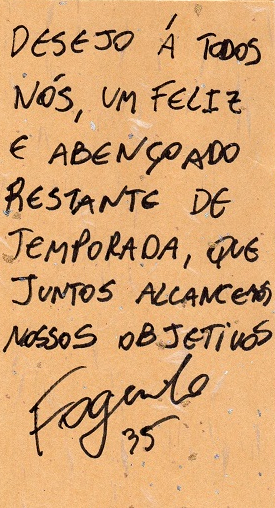 DESEJO Á TODOS
NÓS, UM FELIZ
E ABENÇOADO
RESTANTE DE
TEMPORADA, QUE
JUNTOS ALCANCEMOS
NOSSOS OBJETIVOS
35